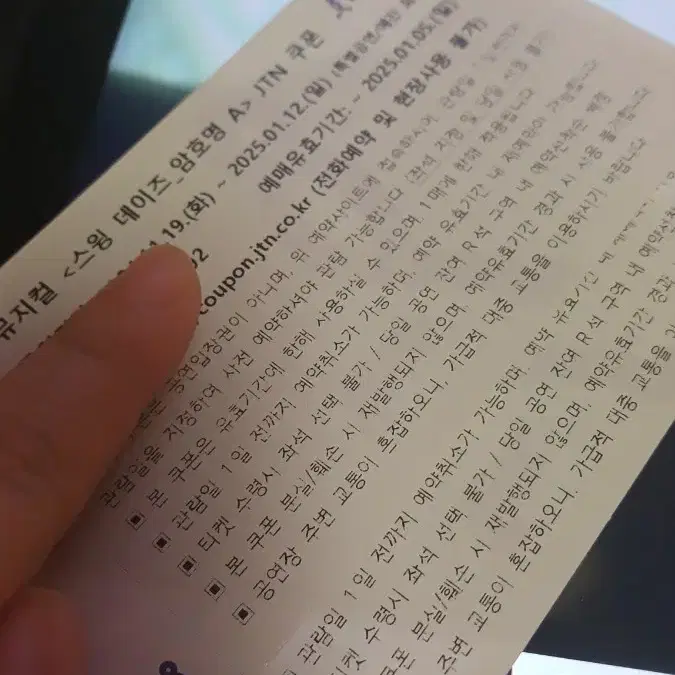 뮤지컬 <스윙 데이즈_암호명 A> JTN 쿠폰
1.19.(화) ~ 2025.01.12.(일)
예매유효기간: ~ 2025.01.05.(일)
coupon.jtn.co.kr (전화예약 및 현장사용 불가)
공연입장권이 아니며, 위 예약사이트에 접속하시어
관람일을 지정하여 사전 예약하셔야 관람 가능합니다
본 쿠폰은 유효기간에 한해 사용하실 수 있으며, 1매에 한해 적용됩니다
관람일 1일 전까지 예약취소가 가능하며, 예약 유효기간 내 재예매가 가능합니다
티켓 수령시 좌석 선택 불가 / 당일 공연 잔여 R석 구역 내 예약선착순 배정
본 쿠폰 분실/훼손 시 재발행되지 않으며, 예약유효기간 경과 시 사용 불가합니다
공연장 주변 교통이 혼잡하오니, 가급적 대중 교통을 이용하시기 바랍니다
관람일 1일 전까지 예약취소가 가능하며, 예약 유효기간 내
티켓 수령시 좌석 선택 불가 / 당일 공연 잔여 R석 구역 내 예약선착
쿠폰 분실/훼손 시 재발행되지 않으며, 예약유효기간 경과
주변 교통이 혼잡하오니, 가급적 대중 교통을